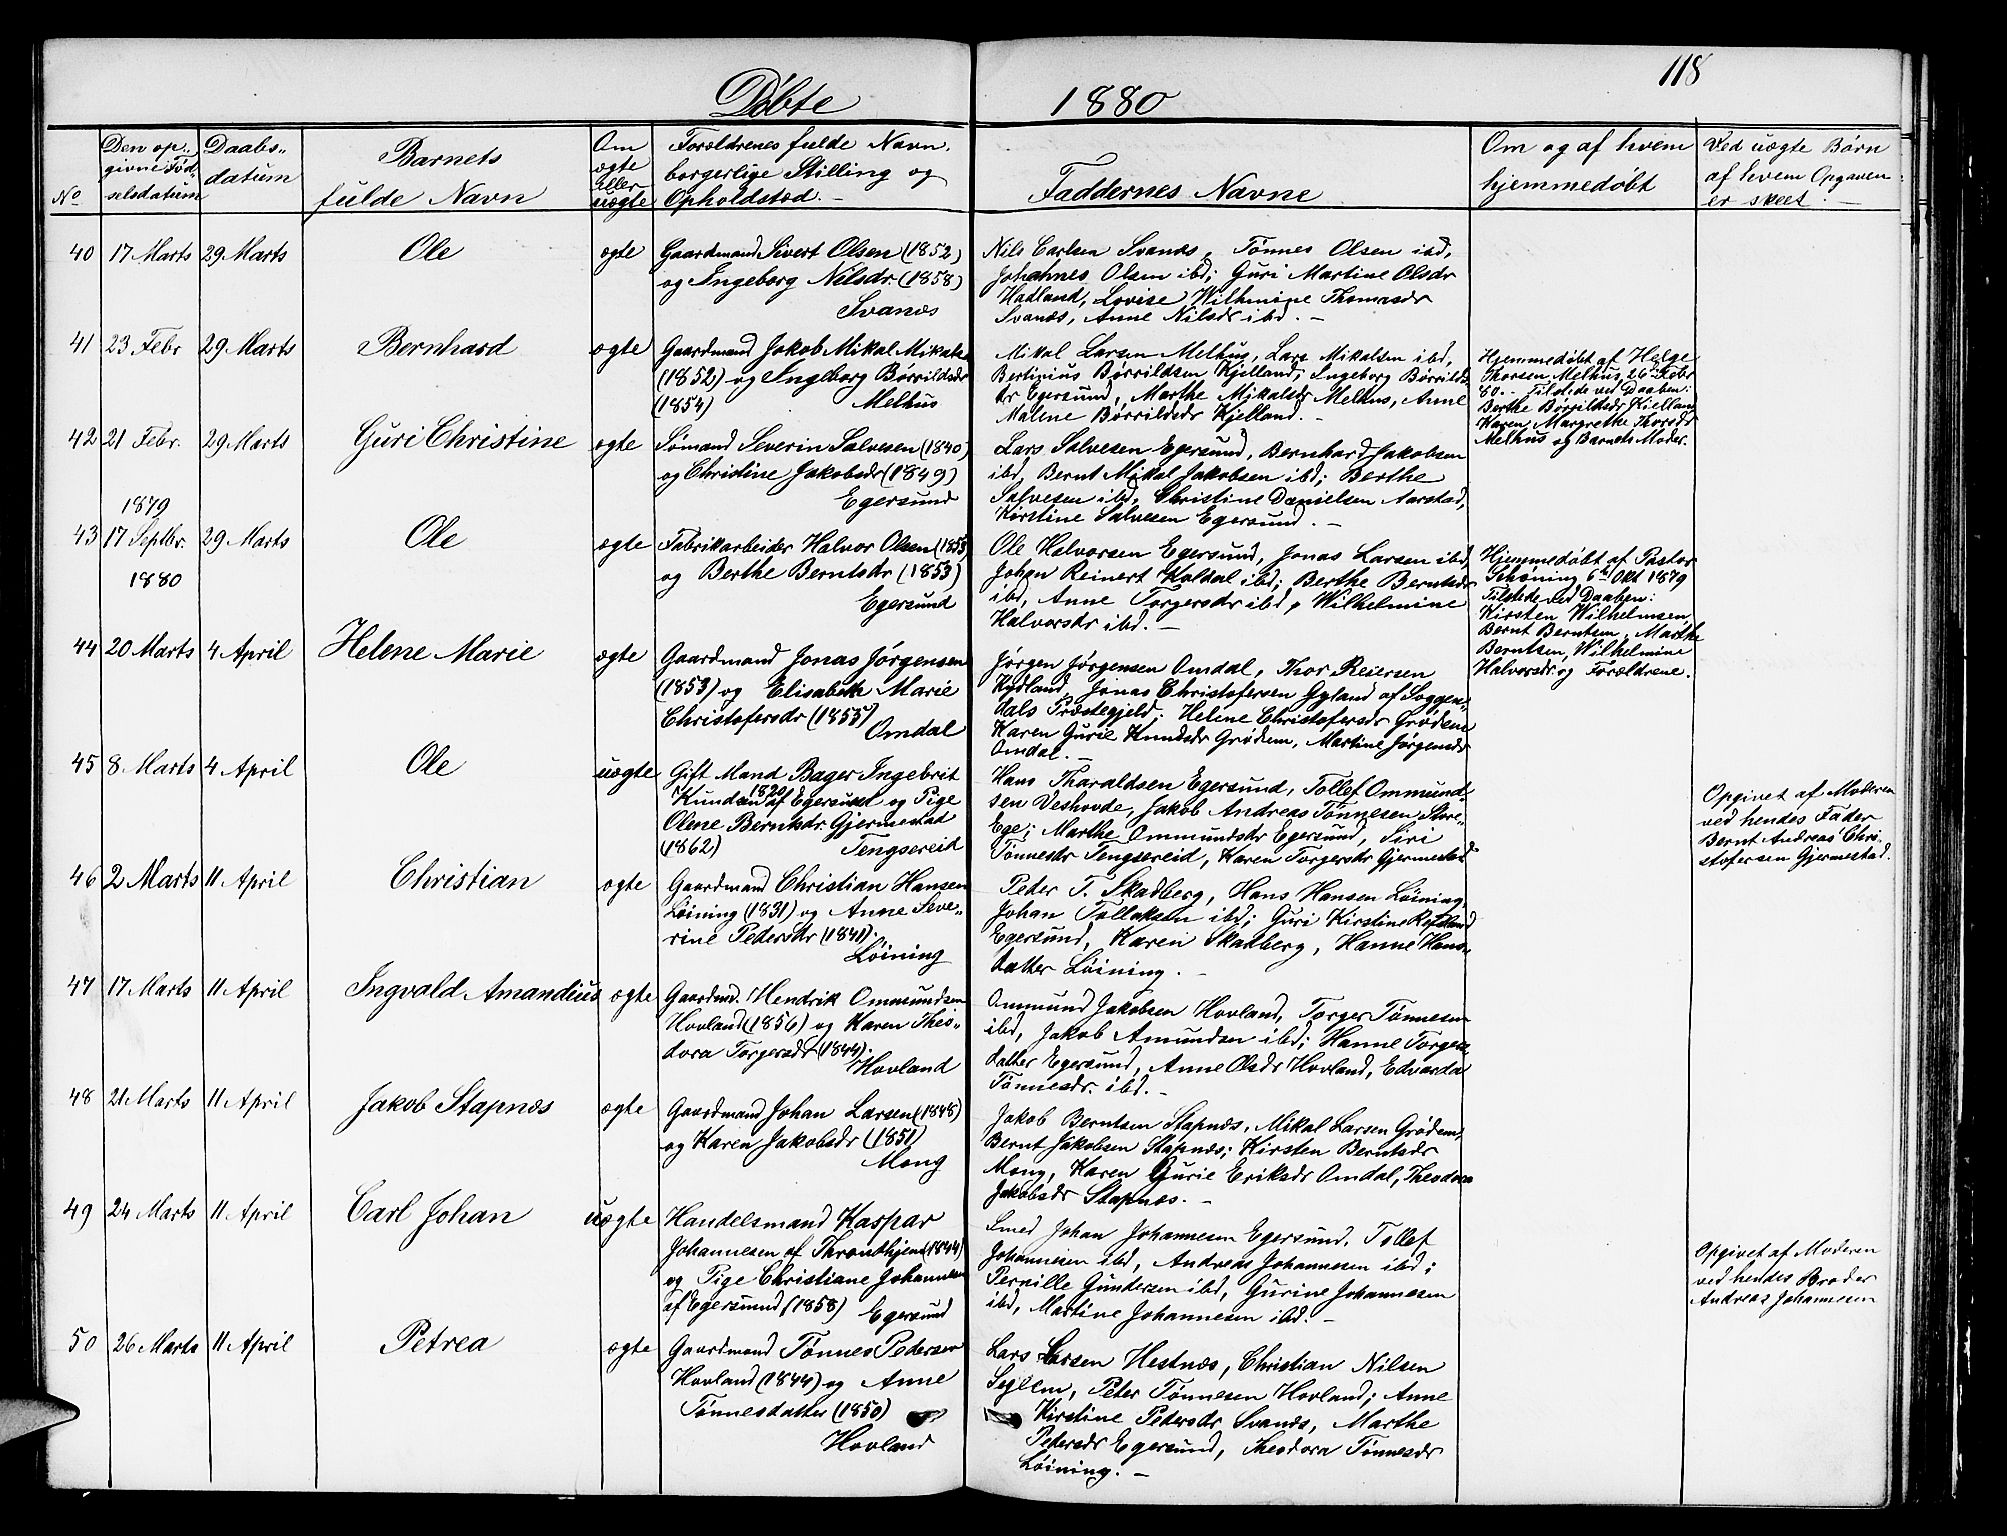 118
Døbte 1880
No
Den op-
givne Fød-
selsdatum
Daabs-
datum
Barnets
fulde Navn
Om
ægte
eller
uægte
Forældrenes fulde Navn,
borgerlige Stilling og
Opholdsted. -
Faddernes Navne
Om og af hvem
hjemmedøbt
Ved uægte Børn
af hvem Opgaven
er skeet. -
40 17 Marts 29 Marts Ole ægte
Gaardmand Sivert Olsen (1852)
og Ingeborg Nilsdr. (1858)
Svanæs
Nils Carlsen Svanæs, Tønnes Olsen ibd,
Johannes Olsen ibd; Guri Martine Olsdr
Hadland, Lovise Wilhmine Thomasdr
Svanæs, Anne Nilsdr ibd. -
41 23 Febr 29 Marts Bernhard ægte
Gaardmand Jakob Mikal Mikals
(1852) og Ingeborg Børrildsdr
(1854) Melhus
Mikal Larsen Melhus, Lars Mikalsen ibd,
Bertinius Børrildsen Kjelland; Ingeborg Børrilds
dr Egersund, Marthe Mikalsdr Melhus, Anne
Malene Børrildsdr Kjelland. -
Hjemmedøbt af Helge
Thorsen Melhus, 26 Febr
80. - Tilstede ved Daaben:
Berthe Børrildsdr Kielland
Karen Margrethe Thorsdr
Melhus og Barnets Moder.
42 21 Febr. 29 Marts Guri Christine ægte
Sømand Severin Salvesen (1840)
og Christine Jakobsdr (1849)
Egersund
Lars Salvesen Egersund, Bernhard Jakobsen
ibd, Bernt Mikal Jakobsen ibd; Berthe
Salvesen ibd, Christine Danielsen Aarstad,
Kirstine Salvesen Egersund. -
1879
43 17 Septbr. 29 Marts Ole ægte
1880
Fabrikarbeider Halvor Olsen (1853)
og Berthe Berntsdr (1853)
Egersund
Ole Halvorsen Egersund, Jonas Larsen ibd,
Johan Reinert Koldal ibd; Berthe Berntsdr
ibd, Anne Torgersdr ibd, Wilhelmine
Halvorsdr ibd. -
Hjemmedøbt af Pastor
Schøning 6te Okt 1879
Tilstede ved Daaben:
Kirsten Wilhelmsen,
Bernt Berntsen, Marthe
Berntsen, Wilhelmine
Halvorsdr og Forældrene.
44 20 Marts 4 April Helene Marie ægte
Gaardmand Jonas Jørgensen
(1853) og Elisabeth Marie
Christofersdr (1855)
Omdal
Jørgen Jørgensen Omdal, Thor Reiersen
Rydland, Jonas Christofersen Gyland af Soggen-
dals Præstegjeld; Helene Christofersdr Grødem
Karen Gurie Knudsdr Grødem, Martine Jørgensdr
Omdal. -
45 8 Marts 4 April Ole uægte
Gift Mand Bager Ingebrit
Knudsen 1820 af Egersund og Pige
Olene Berntsdr. Gjermestad
(1862) Tengsereid
Hans Tharaldsen Egersund, Tollef Ommund-
sen Veshovde, Jakob Andreas Tønnesen Store-
Ege; Marthe Ommundsdr Egersund, Siri
Tønnesdr Tengsereid, Karen Torgersdr Gjermestad
Opgivet af Moderen
ved hendes Fader
Bernt Andreas Chri-
stofersen Gjermestad.
46 2 Marts 11 April Christian ægte
Gaardmand Christian Hansen
Løining (1831) og Anne Seve-
rine Pedersdr (1841).
Løining
Peder T. Skadberg, Hans Hansen Løining
Johan Tollaksen ibd; Guri Kirstine Refsland
Egersund, Karen Skadberg, Hanne Hans-
datter Løining. -
47 17 Marts 11 April Ingvald Amandius ægte
Gaardmd. Hendrik Ommundsen
Hovland (1856) og Karen Theo-
dora Torgersdr (1844).
Hovland
Ommund Jakobsen Hovland, Torger Tønnesen
ibd, Jakob Amundsen ibd; Hanne Torgers
datter Egersund, Anne Olsdr Hovland, Edvarda
Tønnesdr. ibd. -
48 21 Marts 11 April Jakob Stapnæs ægte
Gaardmand Johan Larsen (1848)
og Karen Jakobsdr (1851)
Mong
Jakob Berntsen Stapnæs, Mikal Larsen Grødem,
Bernt Jakobsen Stapnæs; Kirsten Berntsdr
Mong, Karen Gurie Eriksdr Omdal, Theodora
Jakobsdr Stapnæs. -
49 24 Marts 11 April Carl Johan uægte
Handelsmand Kaspar
Johannesen af Throndhjem (1844)
og Pige Christiane Johannesen
af Egersund (1858) Egersund
Smed Johan Johannesen Egersund, Tollef
Johannesen ibd, Andreas Johannesen ibd;
Pernille Gundersen ibd, Gurine Johannesen
ibd, Martine Johannesen ibd. -
Opgivet af Moderen
ved hendes Broder
Andreas Johannesen
50 26 Marts 11 April Petrea ægte
Gaardmand Tønnes Pedersen
Hovland (1844) og Anne
Tønnesdatter (1850)
Hovland
Lars Larsen Hestnæs, Christian Nilsen
Sejlem, Peter Tønnesen Hovland; Anne
Kirstine Pedersdr Svanæs, Marthe
Pedersdr Egersund, Theodora Tønnesdr
Løining. -